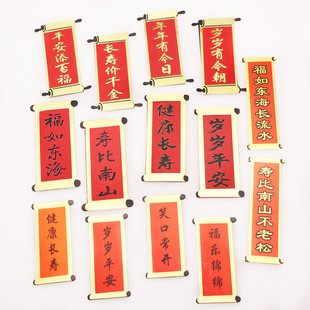 平安添百福
长寿价千金
年年有今日
岁岁有今朝
福如东海长流水
福如东海
寿比南山
健康长寿
岁岁平安
寿比南山不老松
健康长寿
岁岁平安
笑口常开
福乐绵绵